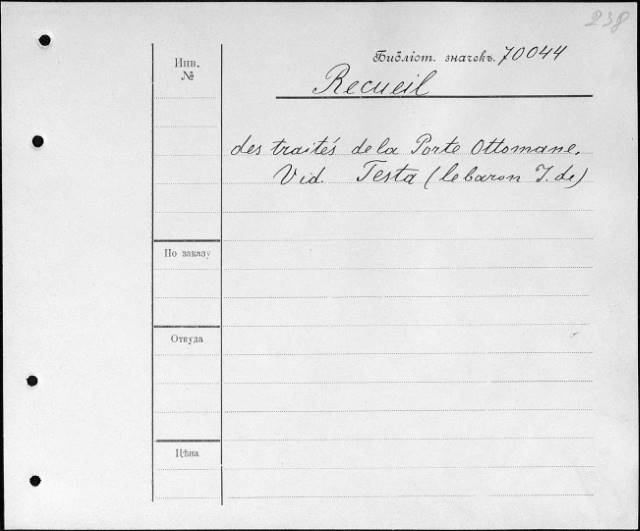 238
Инв.
№
Библіот. значекъ. 70044
Recueil
des traités de la Porte Ottomane.
Vid. Testa (le baron J. de)
По заказу
Откуда
Цѣна